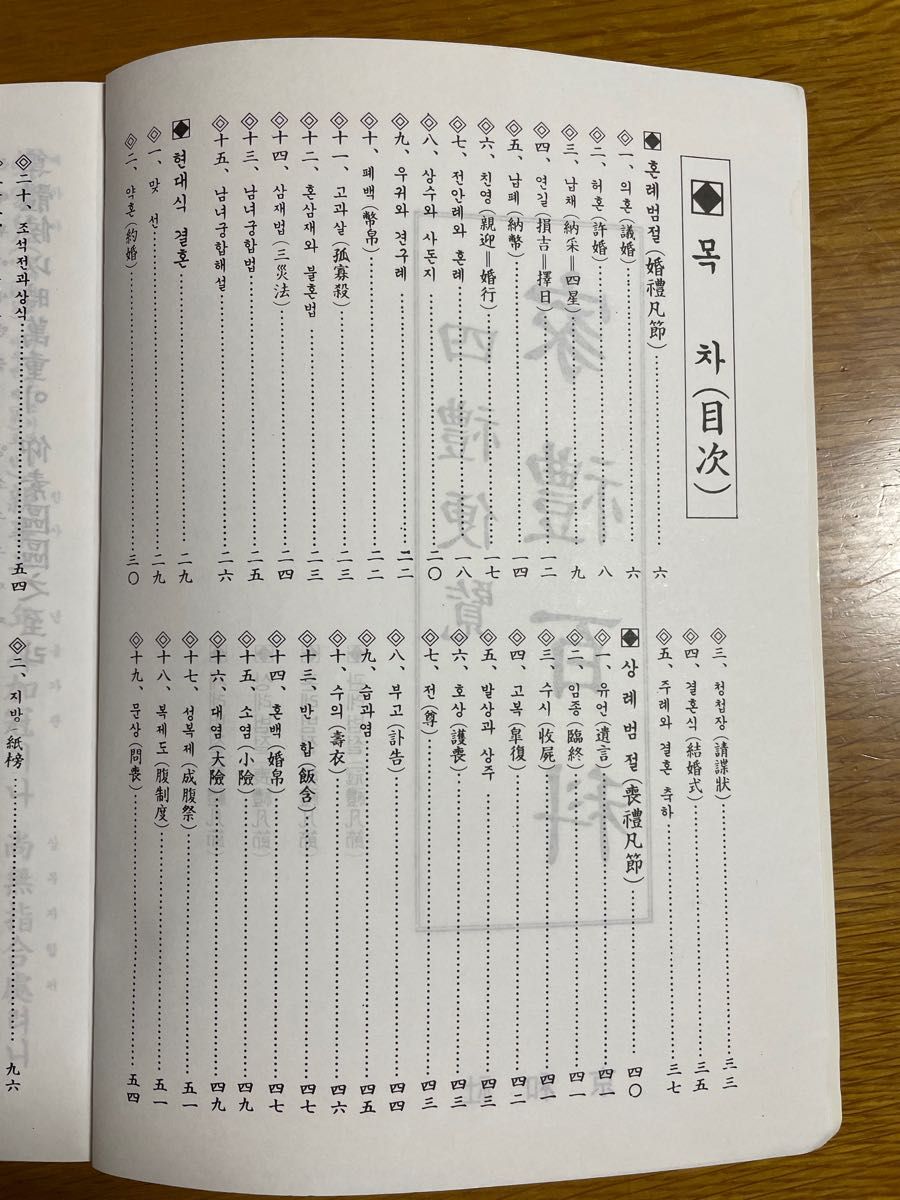 목 차(目次)
혼례범절(婚禮凡節)……六
一、의혼(議婚)……六
二、허혼(許婚)……八
三、납채(納采=四星)……九
四、연길(損吉=擇日)……一二
五、납폐(納幣)……一四
六、친영(親迎=婚行)……一七
七、전안례와 혼례……一八
八、상수와 사돈지……二〇
九、우귀와 견구례……二二
十、폐백(幣帛)……二二
十一、고과살(孤寡殺)……二三
十二、혼삼재와 불혼법……二三
十四、삼재법(三災法)……二四
十三、남녀궁합법……二五
十五、남녀궁합해설……二六
현대식 결혼……二九
一、맞 선……二九
二、약혼(約婚)……三〇
三、청첩장(請諜狀)……三三
四、결혼식(結婚式)……三五
五、주례와 결혼 축하……三七
상 례 범 절(喪禮凡節)……四〇
一、유언(遺言)……四一
二、임종(臨終)……四一
三、수시(收屍)……四二
四、고복(皐復)……四二
五、발상과 상주……四三
六、호상(護喪)……四三
七、전(尊)……四三
八、부고(訃告)……四四
九、습과염……四五
十、수의(壽衣)……四六
十三、반 함(飯含)……四七
十四、혼백(婚帛)……四七
十五、소염(小險)……四九
十六、대염(大險)……四九
十七、성복제(成腹祭)……五一
十八、복제도(腹制度)……五一
十九、문상(問喪)……五四
二十、조석전과상식……五四
二、지방(紙榜)……九六